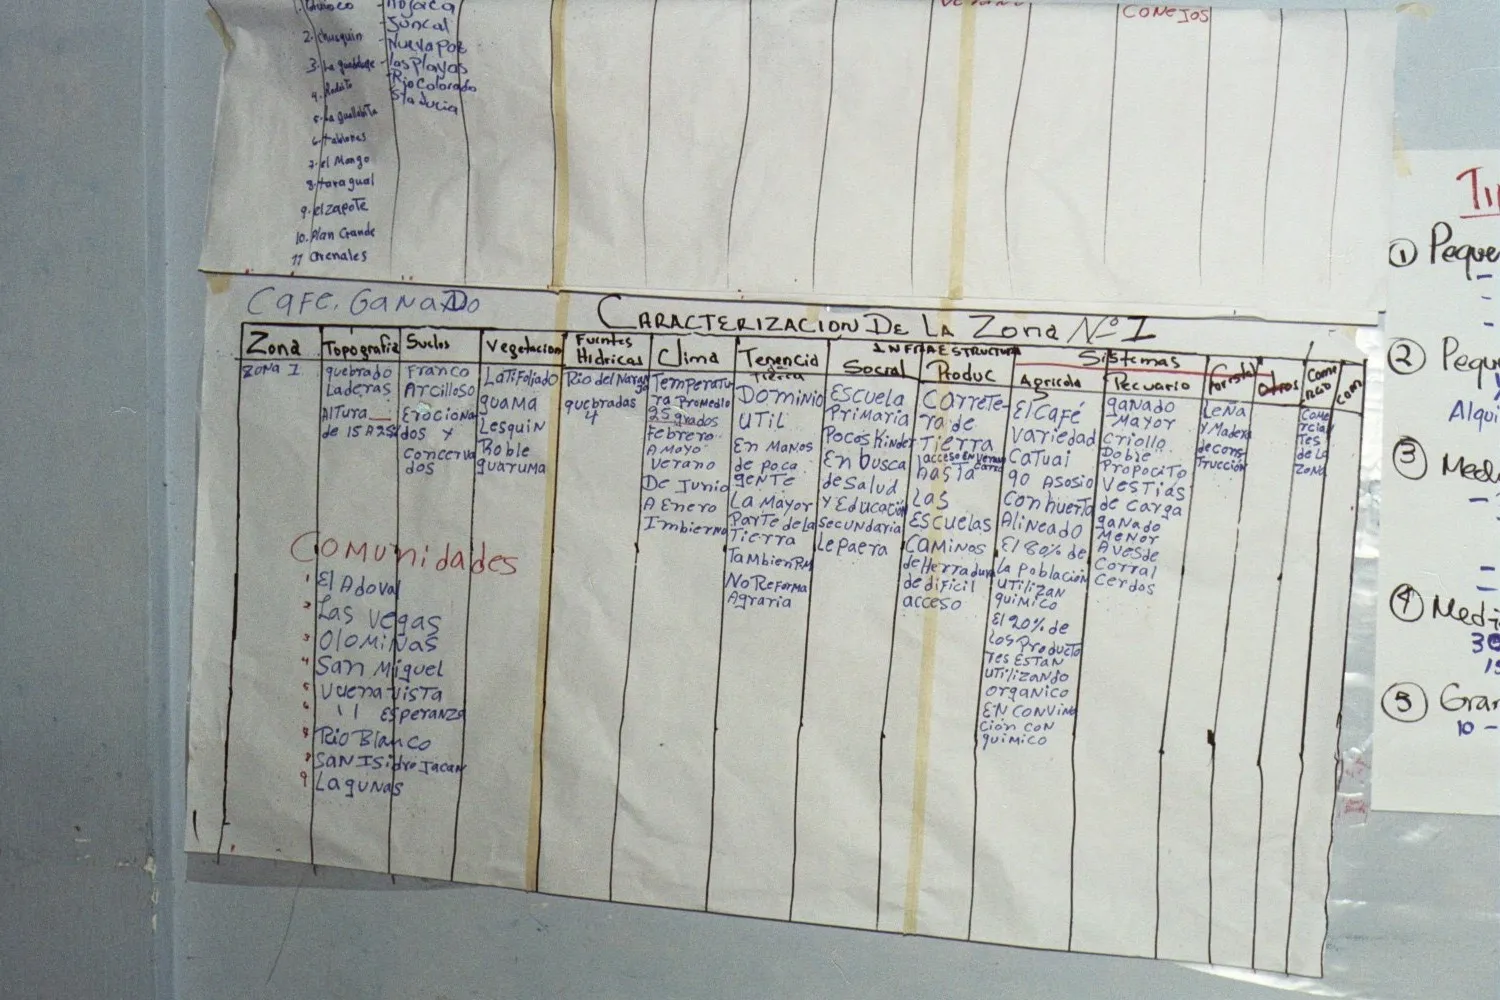 Juncal
2. chusquin
Nuevapoz
Las Playas
Rio Colorado
Sta Lucia
6. tablones
7. el Mango
8. taragual
9. el zapote
10. Plan Grande
11 Arenales
CONEJOS
CAFE. GANADO
CARACTERIZACION DE LA ZONA Nº I
Zona
Topografia
Suelos
Vegetacion
Fuentes
Hidricas
Clima
Tenencia
Tierra
INFRAESTRUCTURA
Social
Produc
Sistemas
Agricola
Pecuario
Forestal
Otros
Com
ZONA I
quebrado
Laderas
Altura
Franco
Arcilloso
Erociona
dos y
concerva
dos
LaTiFoliado
guama
Lesquin
Roble
guaruma
quebradas
4
Temperatu
ra Promedio
25 grados
Febrero
A mayo
Verano
De Junio
A Enero
Imbierno
DOMINIO
UTIL
En manos
de poca
gente
La Mayor
Parte de la
Tierra
Tambien
No Reforma
Agraria
ESCUELA
Primaria
Pocos Kinder
En busca
de Salud
y Educación
secundaria
Lepaera
Carrete-
ra de
Tierra
hasta
Las
ESCUELAS
Caminos
de Herradura
de dificil
acceso
El Café
Variedad
Catuai
90 Asosio
Con huerta
Alineado
El 80% de
La Población
utilizan
quimico
El 20% de
Los Producto
res ESTAN
utilizando
organico
EN CONVINA
ción con
quimico
ganado
Mayor
Criollo
Doble
Propocito
Vestias
de carga
ganado
Menor
Aves de
Corral
Cerdos
Leña
y Madera
de cons
trucción
Come
rcian
Tes
de la
Zona
Comunidades
1 El Adoval
2 Las Vegas
3 Olominas
4 San Miguel
5 Vuena Vista
6 " Esperanza
Rio Blanco
San Isidro Jacan
9 Lagunas
① Peque
② Pequ
Alqui
③ Med
④ Medi
⑤ Gra
10 -